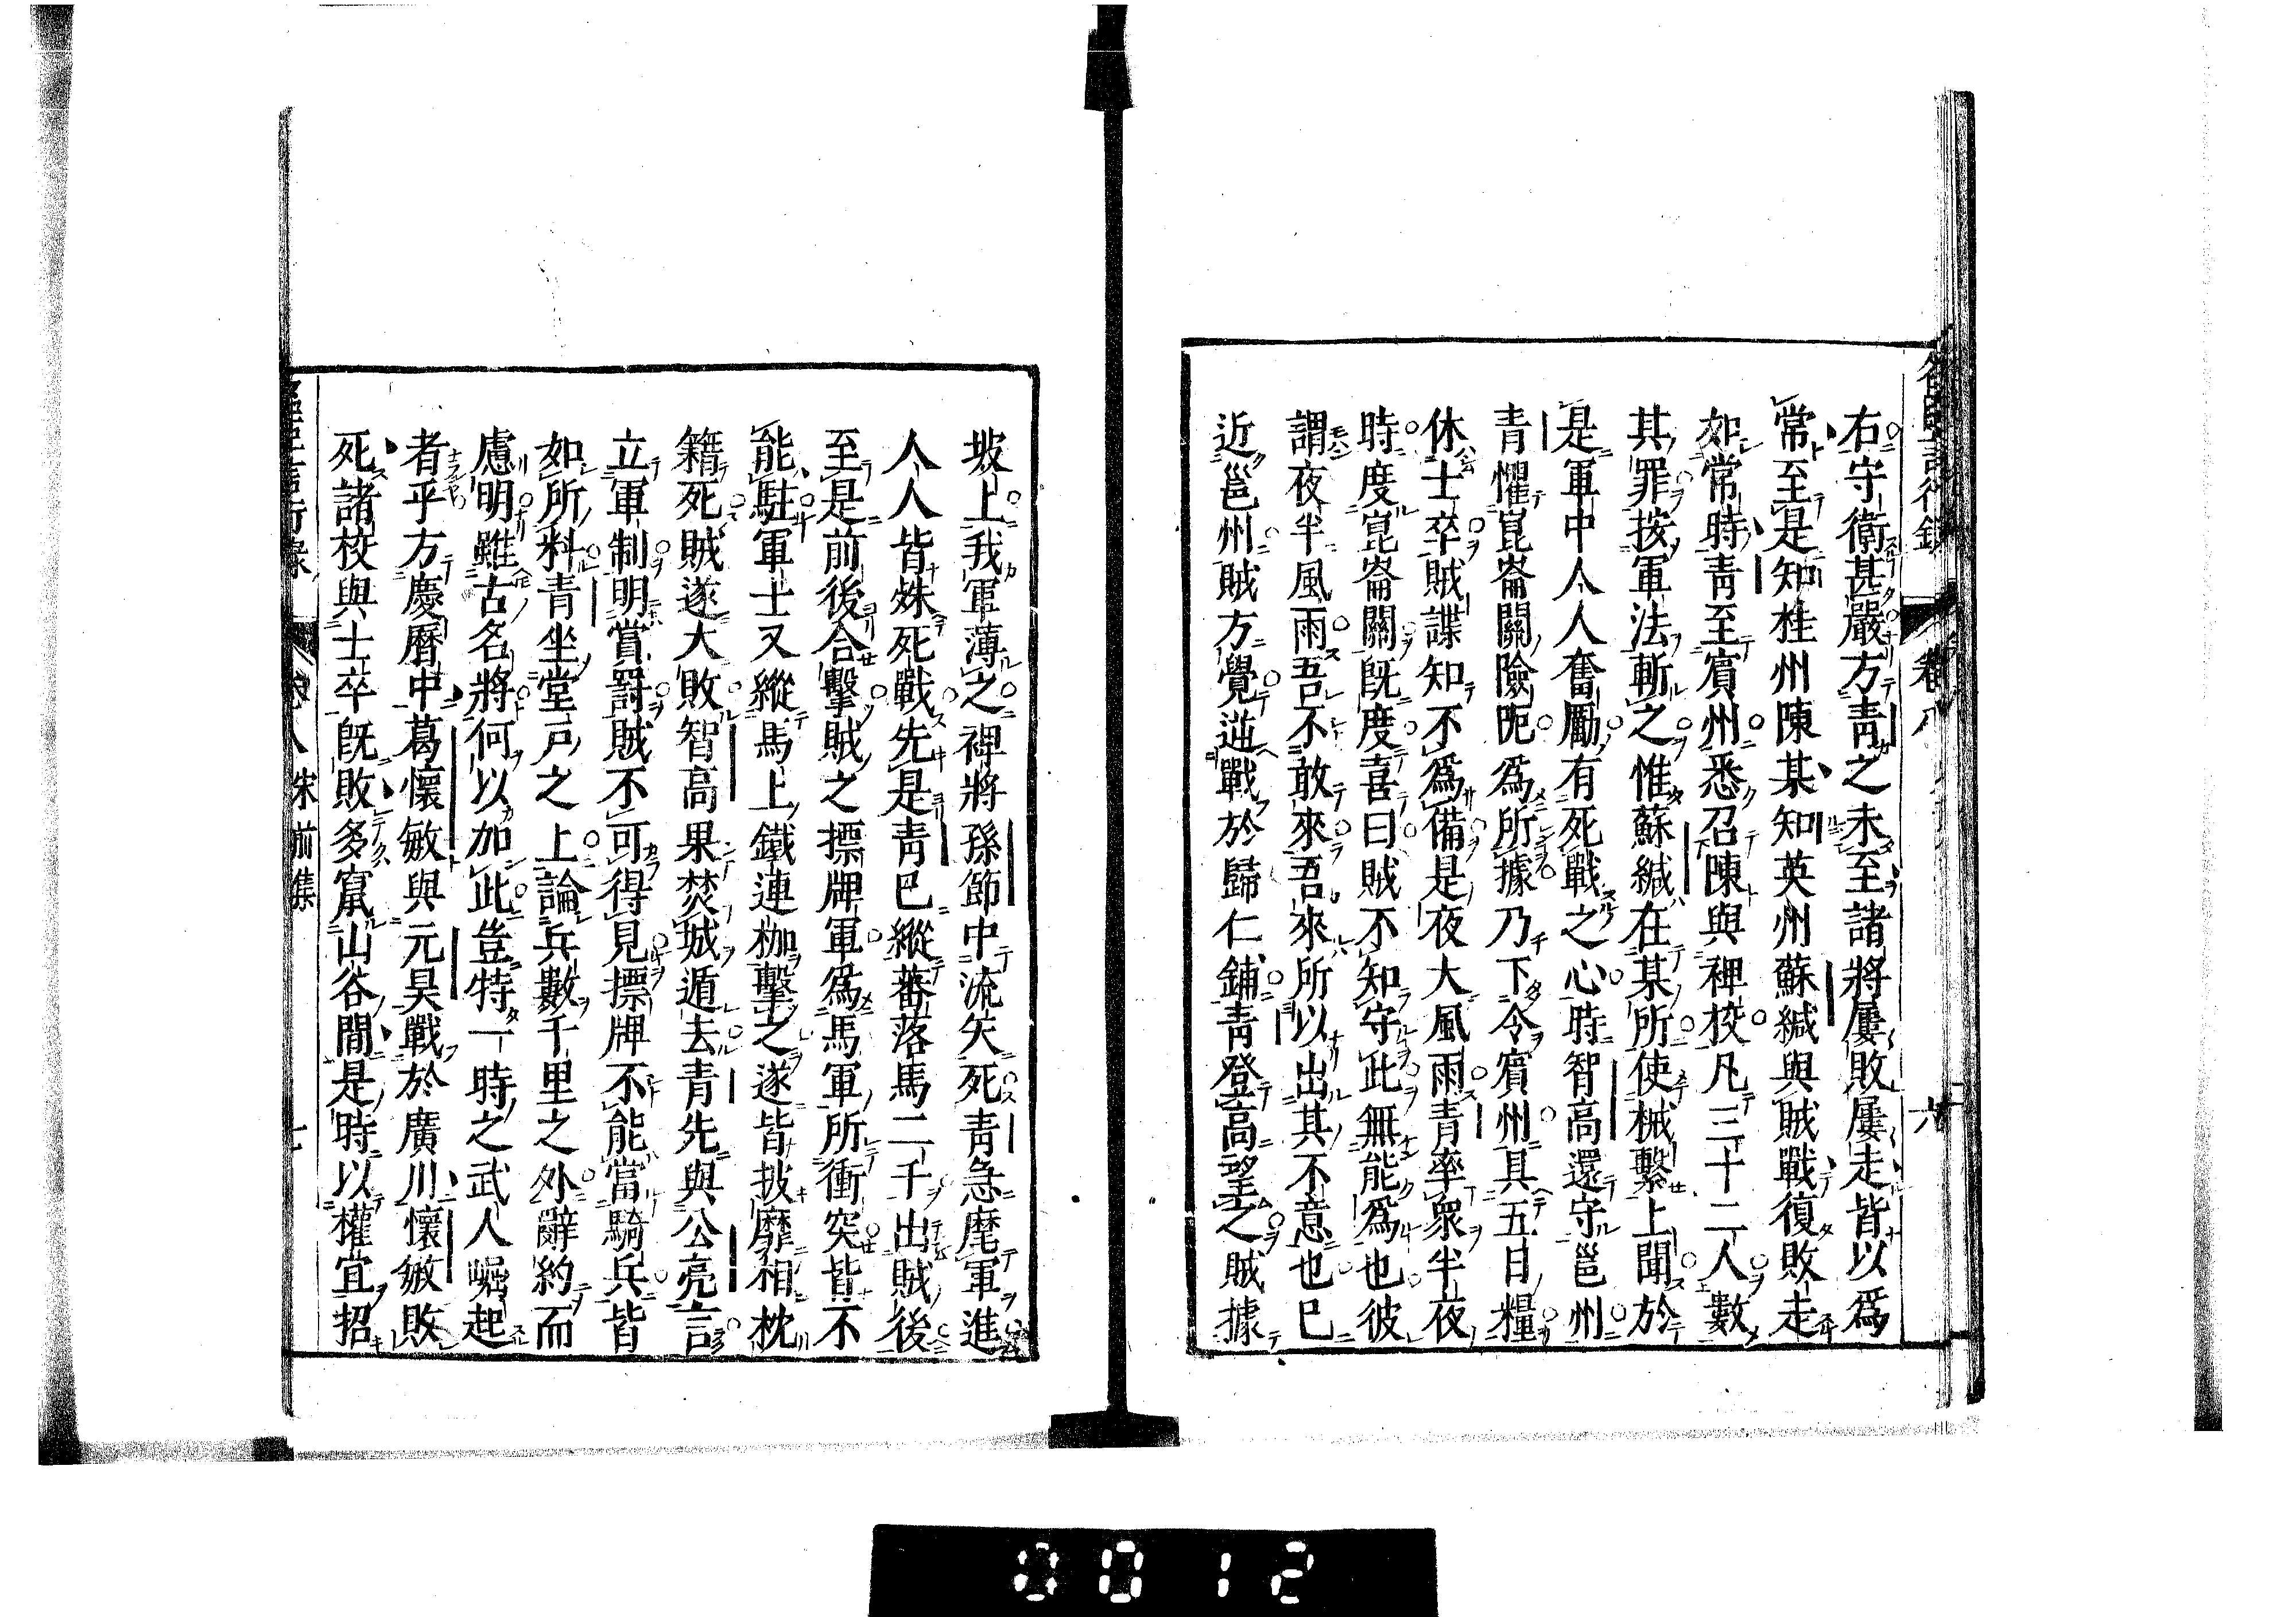 右守衛甚嚴方青之未至諸將屢敗屢走皆以爲
常至是知桂州陳某知英州蘇緘與賊戰復敗走
如常時青至賓州悉召陳與裨校凡三十二人數
其罪按軍法斬之惟蘇緘在某所使械繫上聞於
是軍中人人奮勵有死戰之心時智高還守邕州
青懼崑崙關險阨爲所據乃下令賓州具五日糧
休士卒賊諜知不爲備是夜大風雨青率衆半夜
時度崑崙關既度喜曰賊不知守此無能爲也彼
謂夜半風雨吾不敢來吾來所以出其不意也已
近邕州賊方覺逆戰於歸仁鋪青登高望之賊據
坡上我軍薄之裨將孫節中流矢死青急麾軍進
人人皆殊死戰先是青已縱蕃落馬二千出賊後
至是前後合擊賊之摽牌軍爲馬軍所衝突皆不
能駐軍士又縱馬上鐵連枷擊之遂皆披靡相枕
籍死賊遂大敗智高果焚城遁去青先與公亮言
立軍制明賞罸賊不可得見摽牌不能當騎兵皆
如所料青坐堂戸之上論兵數千里之外辭約而
慮明雖古名將何以加此豈特一時之武人崛起
者乎方慶曆中葛懷敏與元昊戰於廣川懷敏敗
死諸校與士卒既敗多竄山谷間是時以權宜招
卷八
六
宋前集
七
0012